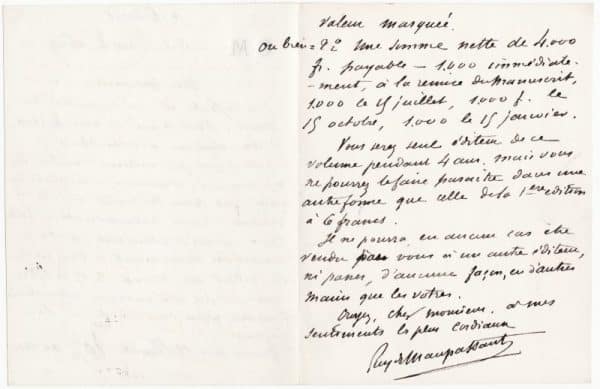 Valeur marquée.
Ou bien = 2° Une somme nette de 4.000
fr. payable — 1.000 immédiate-
-ment, à la remise du manuscrit,
1.000 le 15 juillet, 1.000 f. le
15 octobre, 1.000 le 15 janvier.
Vous serez seul éditeur de ce
volume pendant 4 ans, mais vous
ne pourrez le faire paraître dans une
autre forme que celle de la 1ere edition
à 6 francs.
Il ne pourra en aucun cas être
vendu par vous à un autre éditeur,
ni passer, d'aucune façon, en d'autres
mains que les votres.
Croyez, cher monsieur, à mes
sentiments les plus cordiaux
Guy de Maupassant